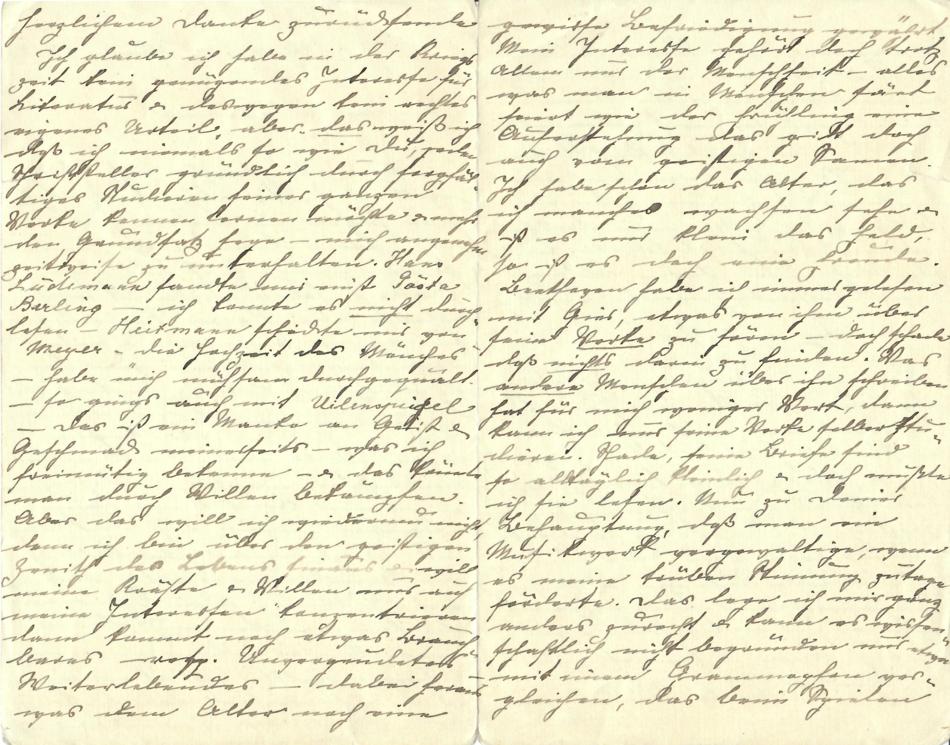 herzlichem Danke zurücksende
Ich glaube ich habe in der Kriegs
zeit kein genügendes Interesse für
Literatur & deswegen kein rechtes
eigenes Urteil, aber das weiß ich
daß ich niemals so wie Du, jeden
Schriftsteller gründlich durch sorgfäl-
tiges Studieren seiner ganzen
Werke kennen lernen möchte & mehr
den Grundsatz hege – mich angenehm
zeitweise zu unterhalten. Hans
Lüdemann sandte mir mist Gösta
Berling – ich konnte es nicht durch
lesen – Heitmann schickte mir von
Meyer – die Hochzeit des Mönches
– habe mich mühsam durchgequält.
– so gings auch mit Uilenspigel
– das ist ein Manko an Geist &
Geschmack meinerseits – was ich
freimütig bekenne – & das könnte
man durch Willen bekämpfen.
Aber das will ich wiederum nicht,
denn ich bin über den geistigen
Zenith des Lebens hinaus & will
meine Kräfte & Willen nur auf
meine Interessen konzentrieren
dann kommt noch etwas Brauch
bares – resp. Unvergeudetes
Weiterlebendes – dabei heraus
was dem Alter noch eine
gewisse Befriedigung gewährt
Mein Interesse gehört doch trotz
Allem nur der Menschheit – alles
was man in Menschen säet
feiert wie der Frühling eine
Auferstehung das gilt doch
auch vom geistigen Samen.
Ich habe schon das Alter, das
ich manches wachsen sehe &
ist es nur klein das Feld,
so ist es doch eine Freude.
Beethoven habe ich immer gelesen
mit Gier, etwas von ihm über
seine Werke zu hören – doch schade
daß nichts darin zu finden. Was
andere Menschen über ihn schreiben
hat für mich weniger Wert, dann
kann ich nur seine Werke selber stu-
dieren. Schade, seine Briefe sind
so alltäglich kleinlich & doch mußte
ich sie lesen. Nun zu Deiner
Behauptung, daß man ein
Musikwerk vergewaltige, wenn
es meine trüben Stimmung zutage
förderte. Das lege ich mir ganz
anders zurecht & kann es wissen
schaftlich nicht begründen nur etwa
mit einem Grammophon ver-
gleichen, das beim Spielen